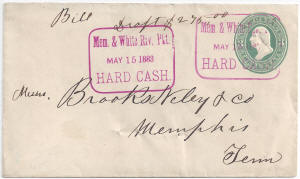 Bill Draft $275.00
Mem. & White Riv. Pkt.
MAY 15 1883
HARD CASH.
Mem. & White
MAY
HARD
Messrs.
Brooks Neley & co
Memphis
Tenn